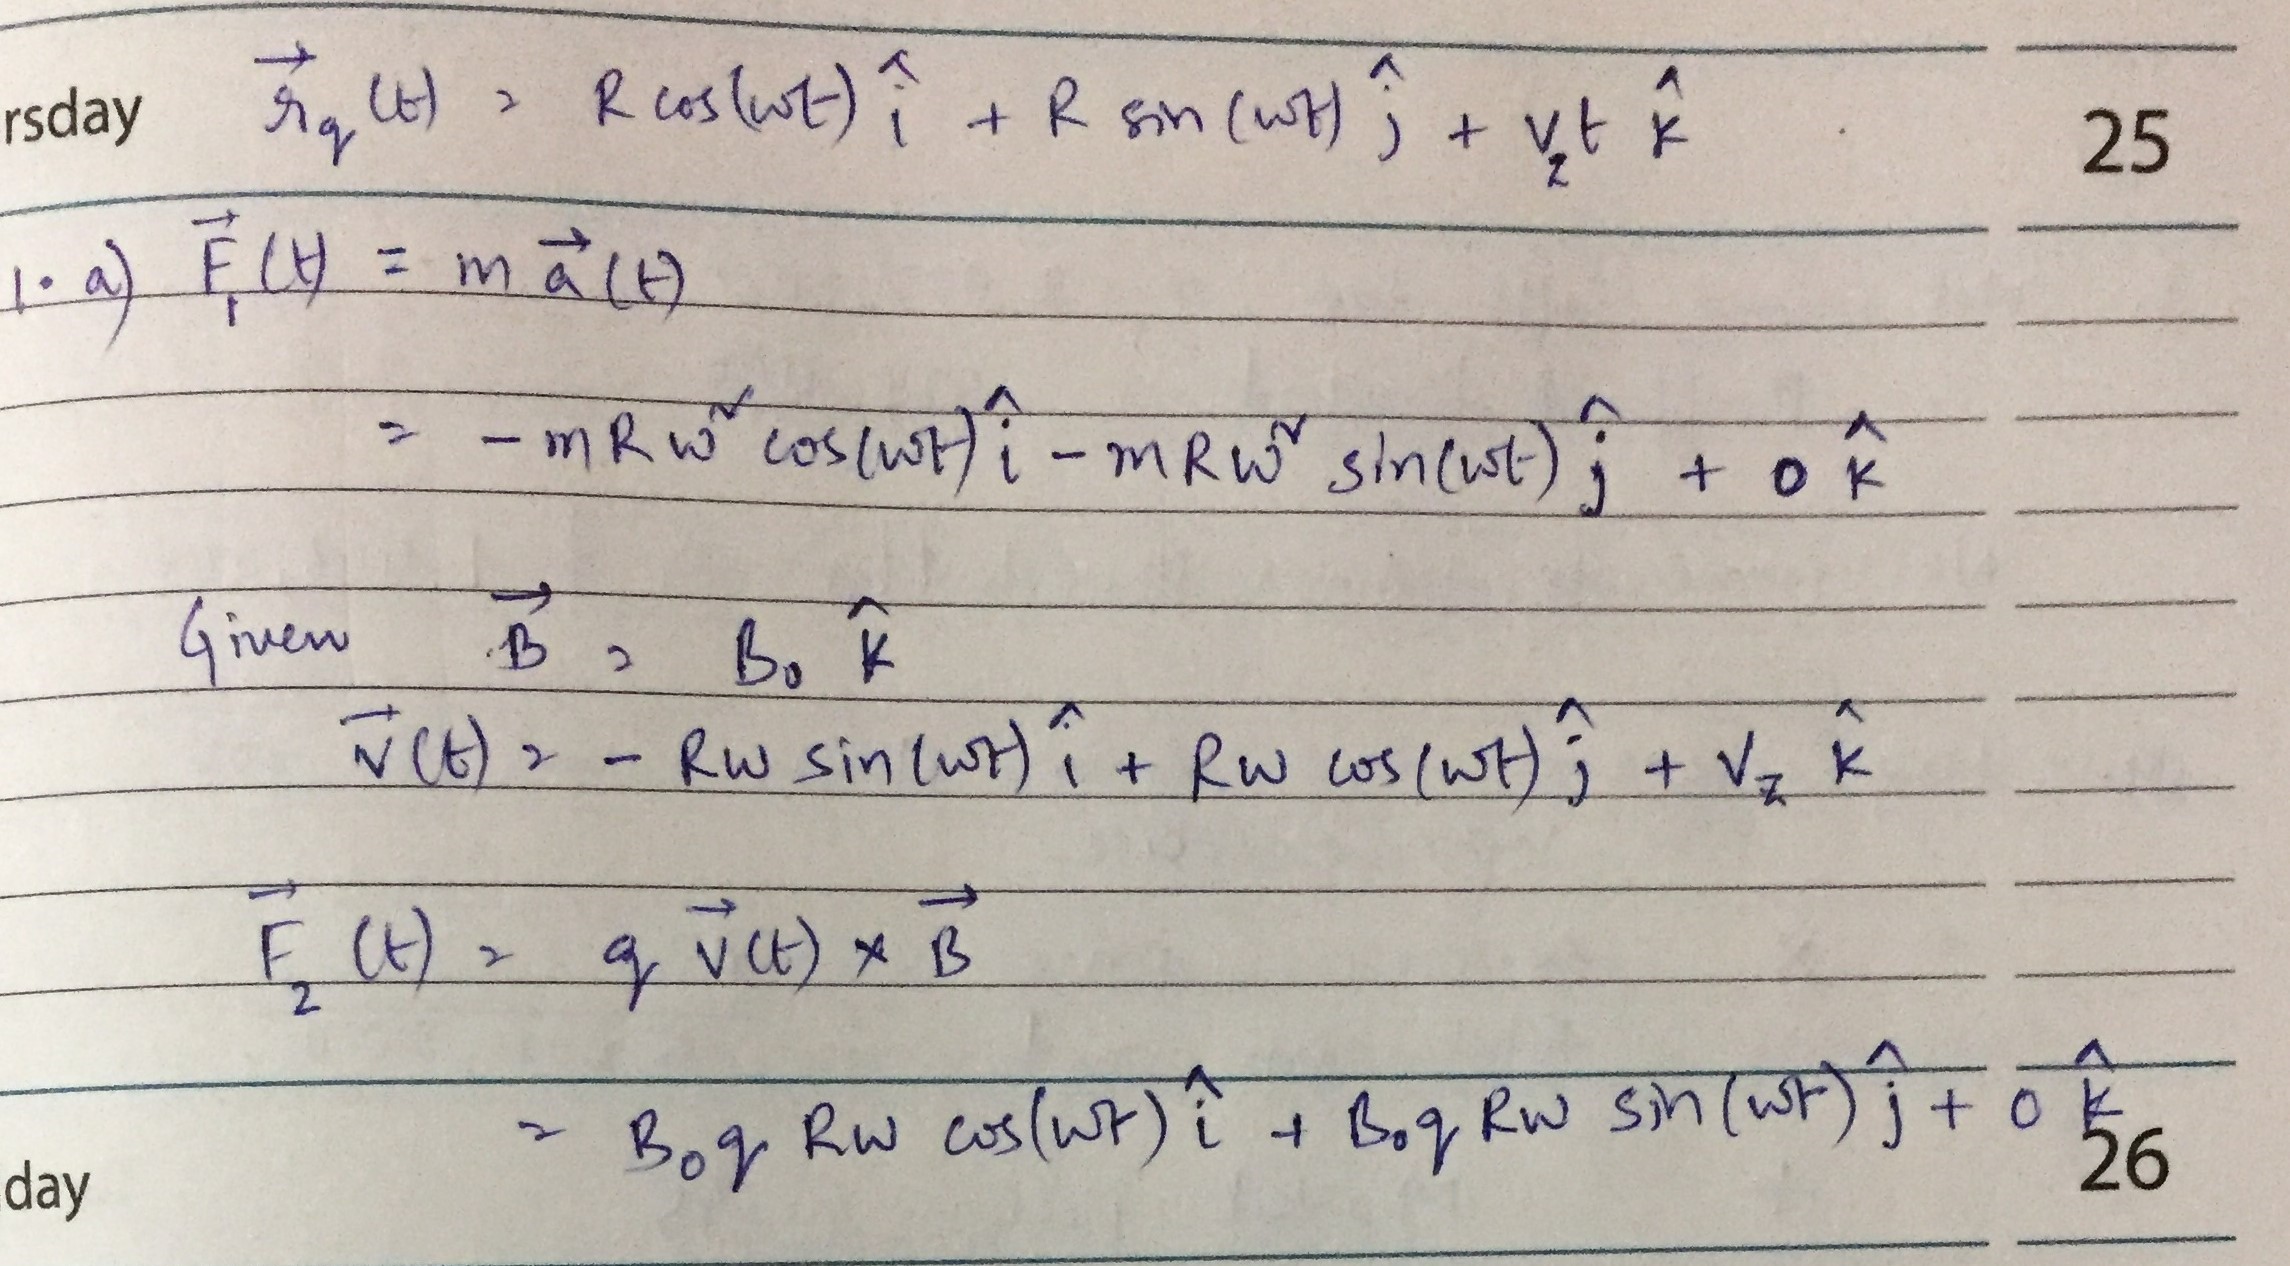 rsday r⃗_q(t) = R cos(ωt) î + R sin(ωt) ĵ + v_z t k̂ 25
1. a) F⃗_1(t) = m a⃗(t)
= - m R ω² cos(ωt) î - m R ω² sin(ωt) ĵ + 0 k̂
Given B⃗ = B_0 k̂
v⃗(t) = - Rω sin(ωt) î + Rω cos(ωt) ĵ + v_z k̂
F⃗_2(t) = q v⃗(t) × B⃗
= B_0 q Rω cos(ωt) î + B_0 q Rω sin(ωt) ĵ + 0 k̂
day 26